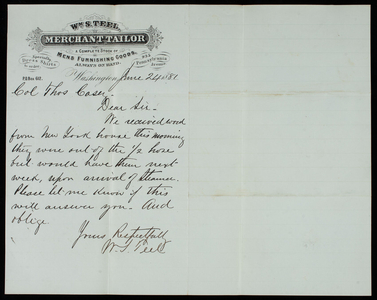 Wm S. TEEL,
MERCHANT TAILOR
A COMPLETE STOCK OF
MENS FURNISHING GOODS,
ALWAYS ON HAND.
Dress Shirts
Pennsylvania
Avenue
P.O. Box
Washington, June 24 188
Col Thos Casey
Dear Sir
We received word
from New York house this morning
they were out of the 1/2 hose
but would have them next
week, upon arrival of Steamer.
Please let me know if this
will answer you. And
oblige
Yours Respectfully
W. S. Teel